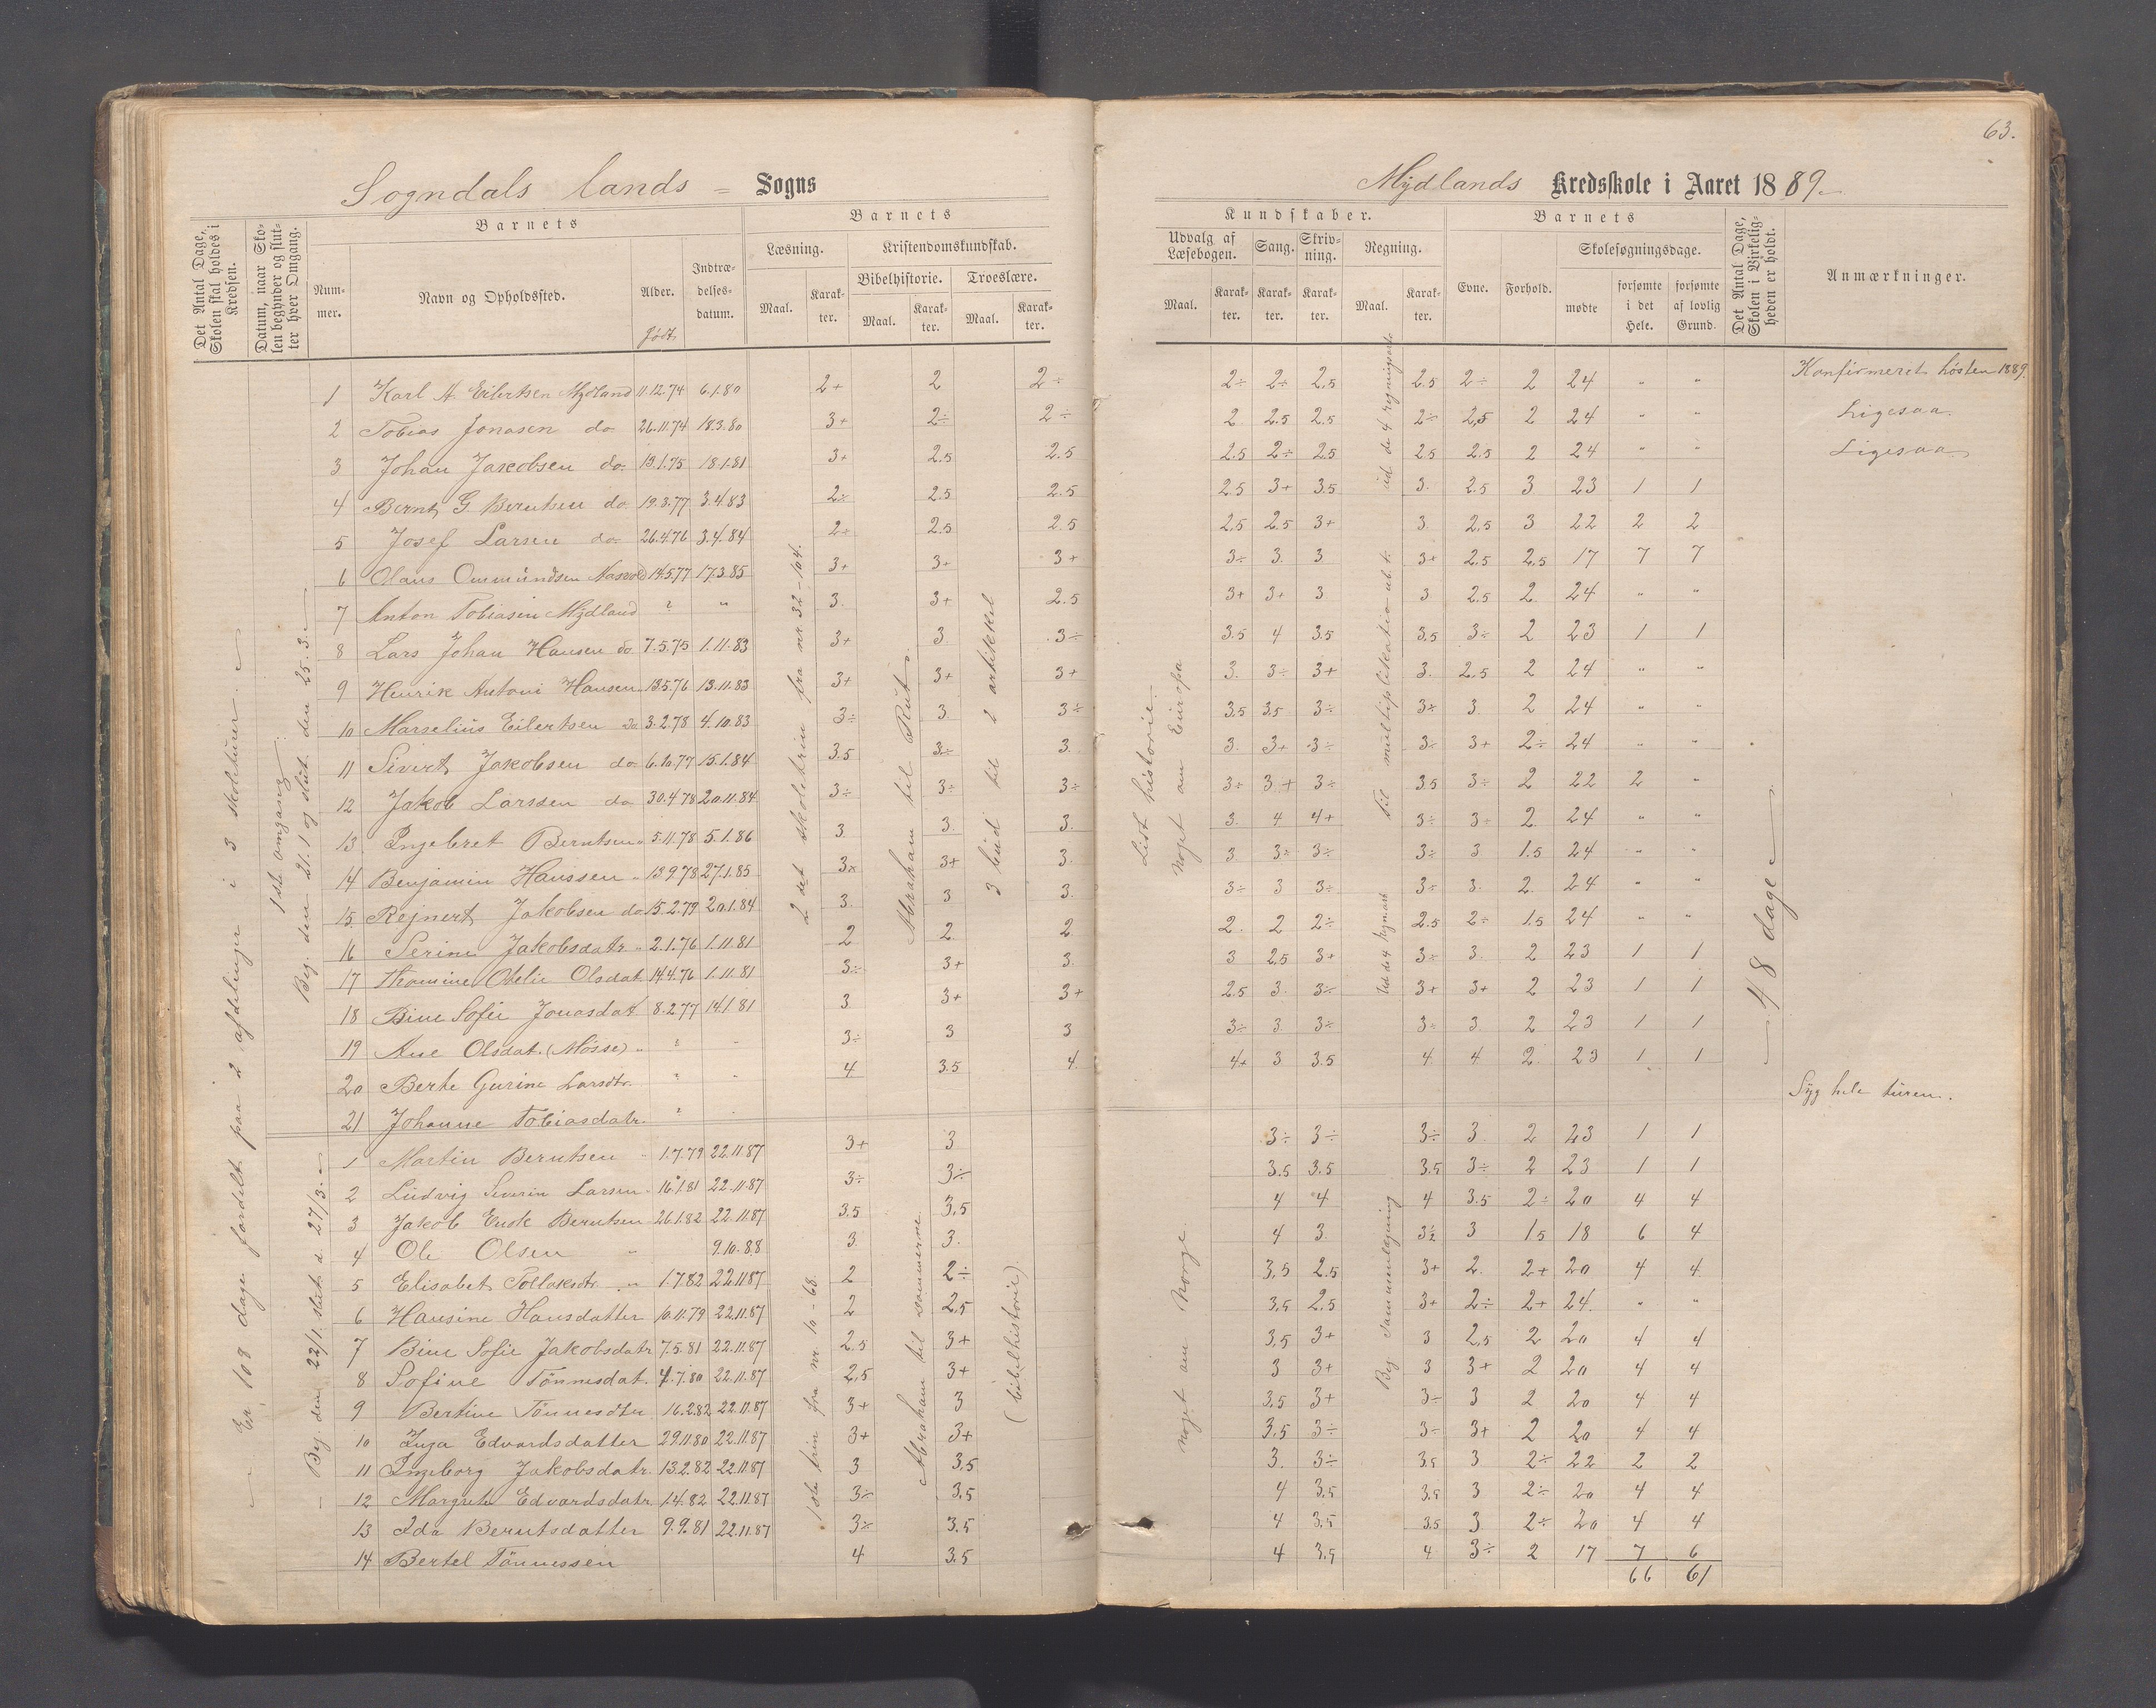 63.
Sogndals lands = Sogns
Mydlands Kredsskole i Aaret 1889.
Det Antal Dage, Skolen skal holdes i Kredsen.
Datum, naar Skolen begynder og slutter hver Omgang.
Barnets
Nummer.
Navn og Opholdssted.
Alder.
født
Indtrædelsesdatum.
Barnets
Læsning.
Kristendomskundskab.
Bibelhistorie.
Troeslære.
Maal.
Karakter.
Maal.
Karakter.
Maal.
Karakter.
Kundskaber.
Udvalg af Læsebogen.
Sang.
Skrivning.
Regning.
Maal.
Karakter.
Karakter.
Karakter.
Maal.
Karakter.
Barnets
Evne.
Forhold.
Skolesøgningsdage.
mødte
forsømte i det Hele.
forsømte af lovlig Grund.
Det Antal Dage, Skolen i Virkeligheden er holdt.
Anmærkninger.
Er 108 dage fordelt paa 2 afdelinger i 3 skoleturer.
1ste omgang
Beg. den 21.1 og slut. den 25.3.
Beg. den 22/1. slut. d. 27/3.
2det skoletrin fra nr. 32-104.
Abraham til Rut.
3 bud til 2 artikkel
Lidt historie.
Noget om Europa
Til multiplikation ub. t.
48 dage
1ste trin fra nr. 10-68.
Abraham til dommerne
(bibelhistorie)
Noget om Norge.
Beg. Sammenlægning
1 Karl A. Eilertsen Mydland 11.12.74 6.1.80 2+ 2 2÷ 2÷ 2÷ 2,5 2.5 2÷ 2 24 " " Konfirmeret høsten 1889.
2 Tobias Jonasen do 26.11.74 18.3.80 3+ 2÷ 2÷ 2 2.5 2.5 2÷ 2,5 2 24 " " Ligesaa.
3 Johan Jakobsen do 19.1.75 18.1.81 3+ 2.5 2.5 2.5 2÷ 2.5 2.5 2.5 2 24 " " Ligesaa
4 Bernt G. Berntsen do 19.3.77 3.4.83 2÷ 2.5 2.5 2.5 3+ 3.5 3. 2.5 3 23 1 1
5 Josef Larsen do 26.4.76 3.4.84 2÷ 2.5 2.5 2,5 2.5 3+ 3 2,5 3 22 2 2
6 Olaus Ommundsen 14.5.77 17.3.85 3+ 3+ 3+ 3÷ 3. 3 3+ 2.5 2,5 17 7 7
7 Anton Tobiasen Mydland ? " 3. 3+ 2.5 3+ 3+ 3 3 2.5 2. 24 " "
8 Lars Johan Hansen do 7.5.75 1.11.83 3+ 3. 3÷ 3.5 4 3.5 3,5 3÷ 2 23 1 1
9 Henrik Antoni Hansen 13.5.76 13.11.83 3+ 3+ 3+ 3. 3÷ 3+ 3. 2.5 2 24 " "
10 Marselius Eilertsen do 3.2.78 4.10.83 3÷ 3. 3÷ 3,5 3,5 3÷ 3+ 3. 2 24 " "
11 Sivert Jakobsen do 6.10.77 15.1.84 3.5 3÷ 3. 3. 3+ 3÷ 3÷ 3+ 2÷ 24 " "
12 Jakob Larssen do 30.4.78 20.11.84 3÷ 3÷ 3÷ 3÷ 3+ 3÷ 3.5 3÷ 2 22 2 "
13 Ingebret Berntsen 5.11.78 5.1.86 3 3. 3. 3. 4 4+ 3÷ 3÷ 2. 24 " "
14 Benjamin Hanssen " 13.9.78 27.1.85 3+ 3+ 3. 3 3÷ 3÷ 3÷ 3 1.5 24 " "
15 Rejnert Jakobsen do 15.2.79 20.1.84 3. 3 3. 3÷ 3 3÷ 3÷ 3. 2. 24 " "
16 Serine Jakobsdatr " 2.1.76 1.11.81 2 2. 2 2. 2 2÷ 2.5 2÷ 1.5 24 " "
17 Odelie Olsdat. 14.4.76 1.11.81 3÷ 3+ 3. 3 2,5 3+ 3÷ 3. 2 23 1 1
18 Bine Sofie Jonasdat 8.2.77 14.1.81 3 3+ 3+ 2.5 3. 3÷ 3+ 3+ 2 23 1 1
19 Ane Olsdat. (Mosse) " " 3÷ 3 3 3÷ 3. 3÷ 3÷ 3. 2 23 1 1
20 Berte Gurine Larsdtr. " 4 3.5 4. 4+ 3 3.5 4. 4 2. 23 1 1
21 Johanne Tobiasdatr. " Syg hele turen.
1 Martin Berntsen " 1.7.79 22.11.87 3+ 3 3÷ 3÷ 3÷ 3. 2 23 1 1
2 Ludvig Severin Larsen 16.1.81 22.11.87 3÷ 3÷ 3.5 3.5 3.5 3÷ 2 23 1 1
3 Jakob Enok Berntsen 26.1.82 22.11.87 3.5 3,5 4 4 4 3.5 2÷ 20 4 4
4 Ole Olsen " 9.10.88 3. 3. 4 3. 3½ 3 1.5 18 6 4
5 Elisabet Tollaksdtr. " 1.7.82 22.11.87 2 2÷ 3,5 2.5 3+ 2. 2+ 20 4 4
6 Hansine Hansdatter 10.11.79 22.11.87 2 2,5 3,5 2.5 3+ 2÷ 2+ 24. " "
7 Bine Sofie Jakobsdatr 7.5.81 22.11.87 2.5 3+ 3,5 3+ 3 2,5 2 20 4 4
8 Sofine Tönnesdat. 4.7.80 22.11.87 2,5 3+ 3 3+ 3 3+ 2 20 4 4
9 Bertine Tönnesdtr 16.2.82 22.11.87 3+ 3 3,5 3+ 3÷ 3 2 20 4 4
10 Inga Edvardsdatter 29.11.80 22.11.87 3+ 3+ 3,5 3÷ 3÷ 3+ 2 20 4 4
11 Ingeborg Jakobsdatr. 13.2.82 22.11.87 3 3,5 3. 3÷ 3.5 3. 2÷ 22 2 2
12 Margrete Edvardsdatr. 1.4.82 22.11.87 3÷ 3,5 4 3.5 3.5 3 2÷ 20 4 4
13 Ida Berntsdatter 9.9.81 22.11.87 3÷ 3.5 4 3,5 3.5 3 2÷ 20 4 4
14 Bertel Tönnessen 4 3,5 4 3,5 4 3÷ 2 17 7 6
66 61